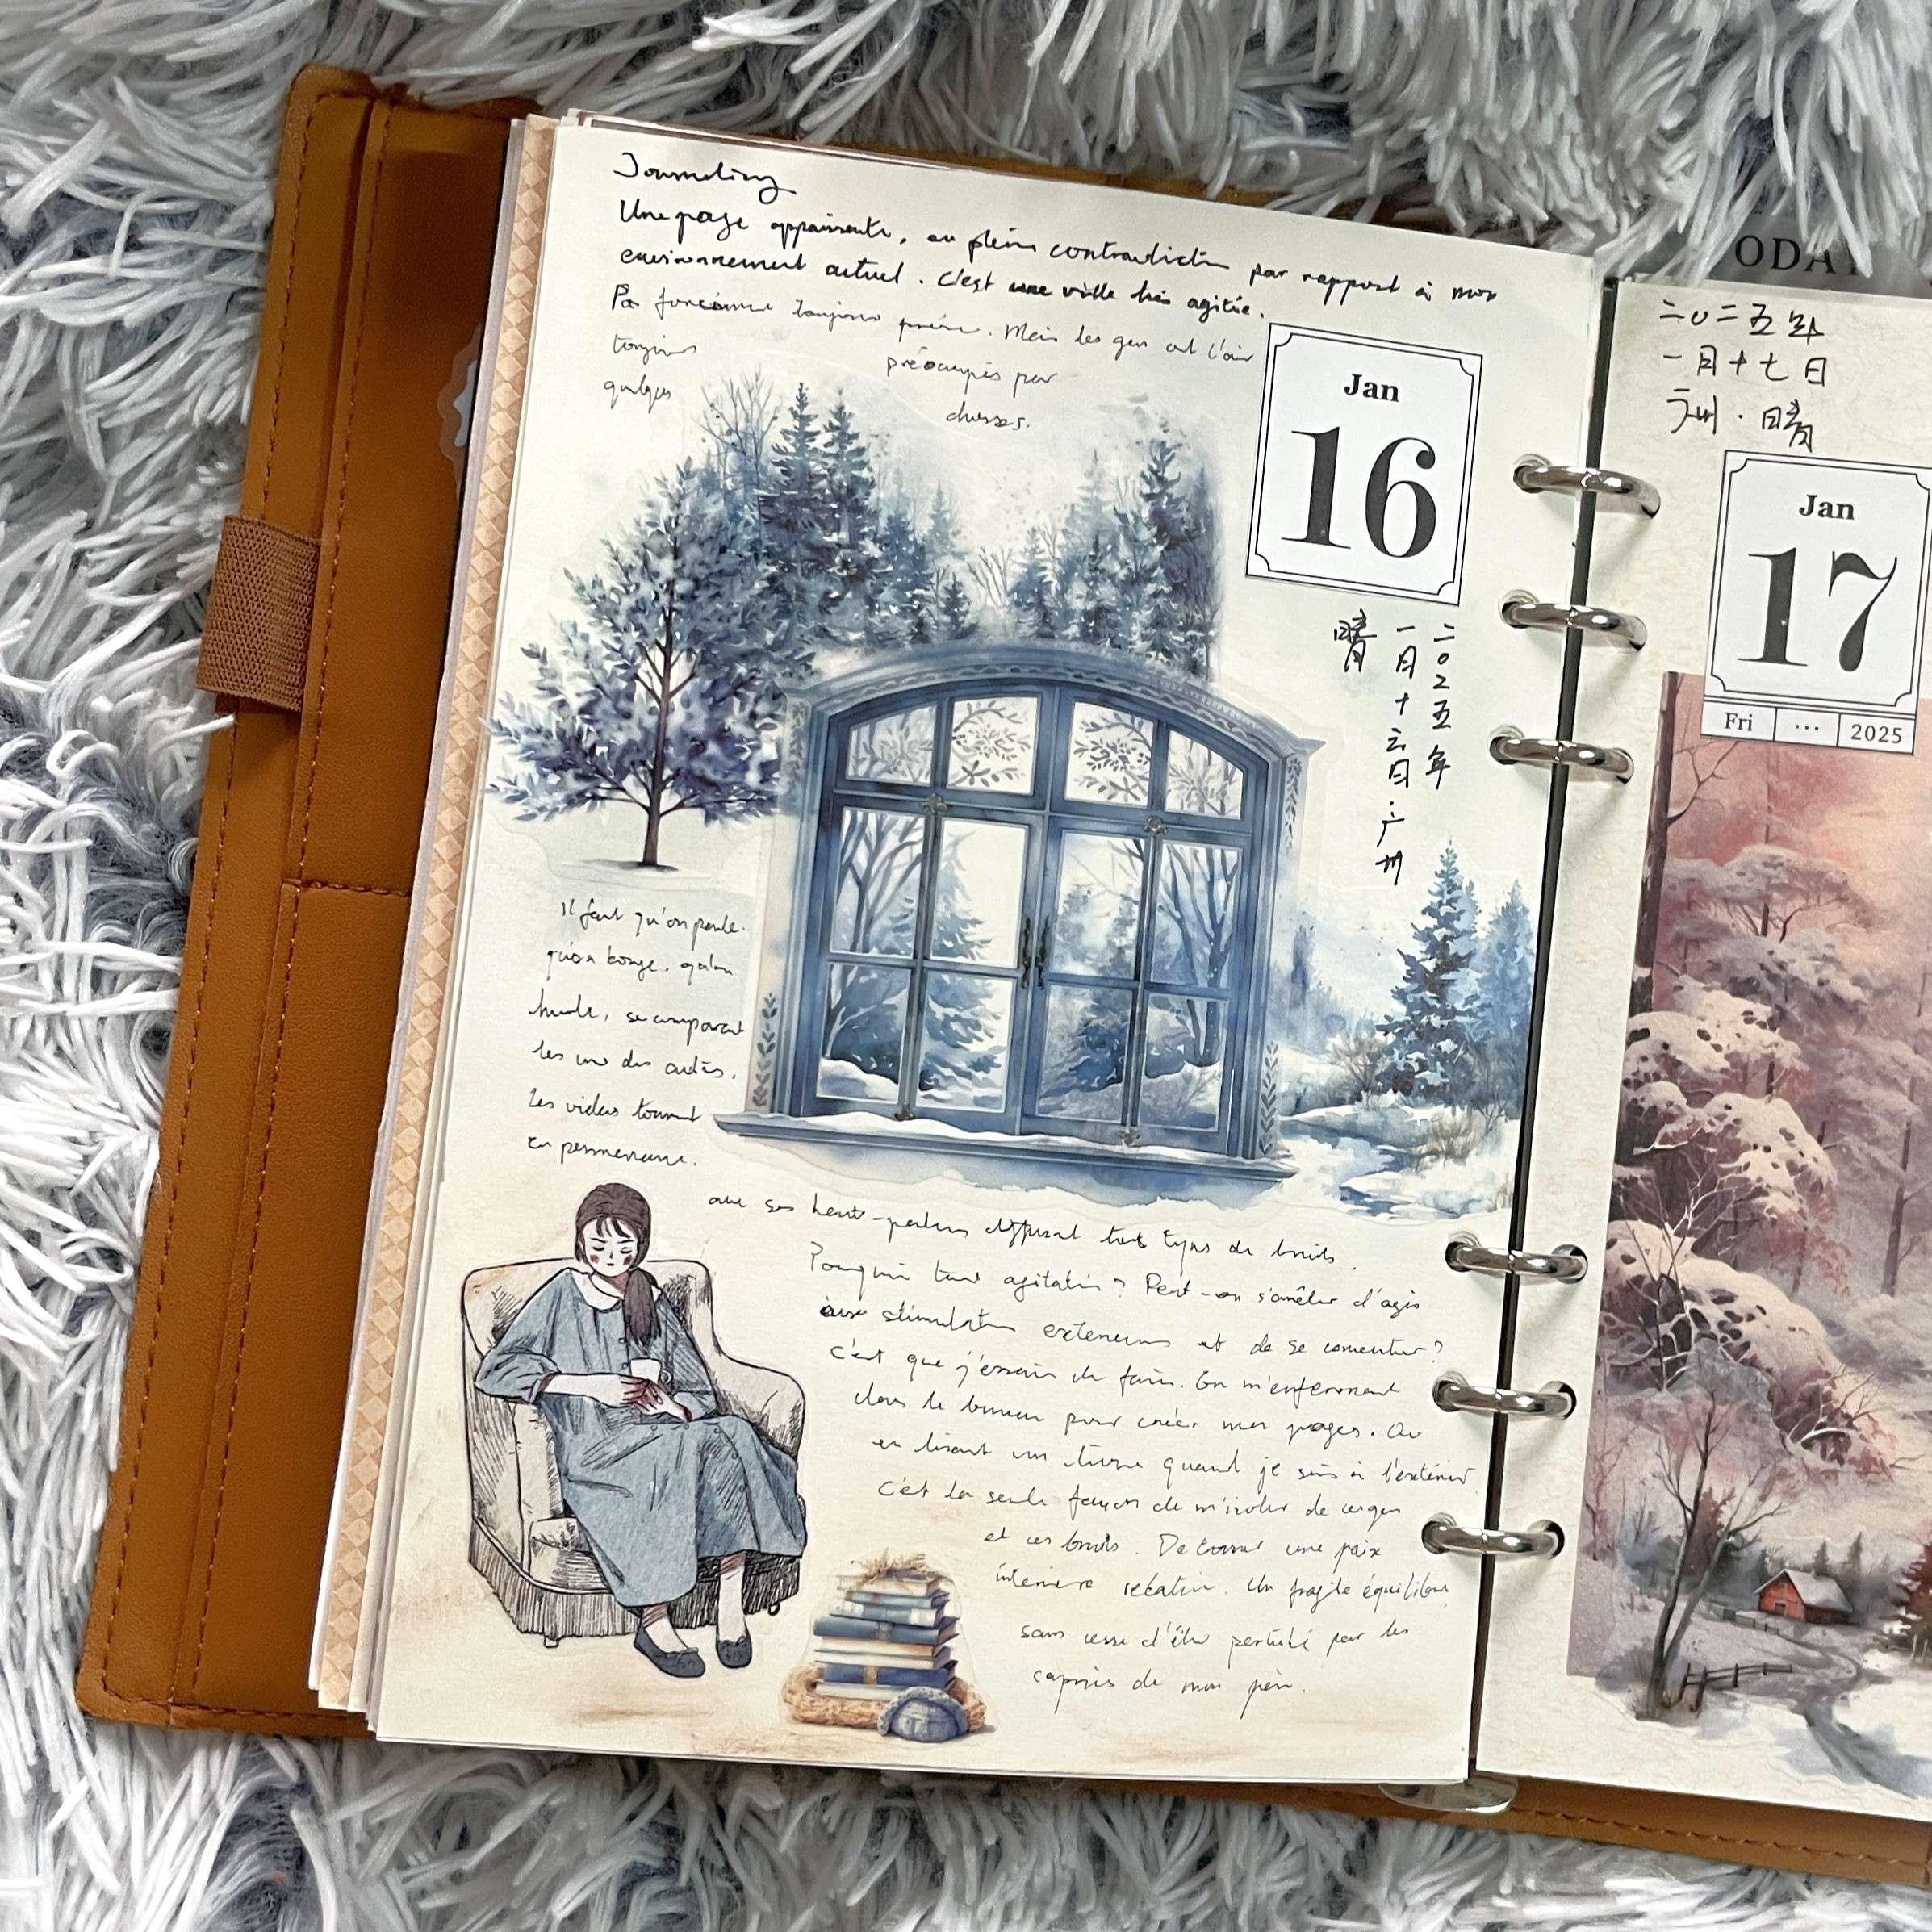 Journaling
Une page appaisante, en pleine contradiction par rapport à mon
environnement actuel. C'est une ville très agitée.
Pas forcément toujours pressée. Mais les gens ont l'air
toujours préoccupés par
quelques choses.
Jan
16
二〇二五年
一月十六日·广州
晴
Il faut qu'on parle.
qu'on bouge, qu'on
hurle, se comparant
les uns des autres.
Les vidéos tournent
en permanence.
avec ses haut-parleurs diffusant tout types de bruits.
Pourquoi tant agitation? Peut-on s'arrêter d'agir
aux stimulations extérieures et de se concentrer?
C'est que j'essaie de faire. En m'enfermant
dans le bureau pour créer mes pages. Ou
en lisant un livre quand je suis à l'extérieur
C'est la seule façon de m'isoler de ces gens
et ces bruits. De trouver une paix
intérieure relative. Un fragile équilibre,
sans cesse d'être perturbé par les
caprices de mon père.
ODA
二〇二五年
一月十七日
广州·晴
Jan
17
Fri ... 2025